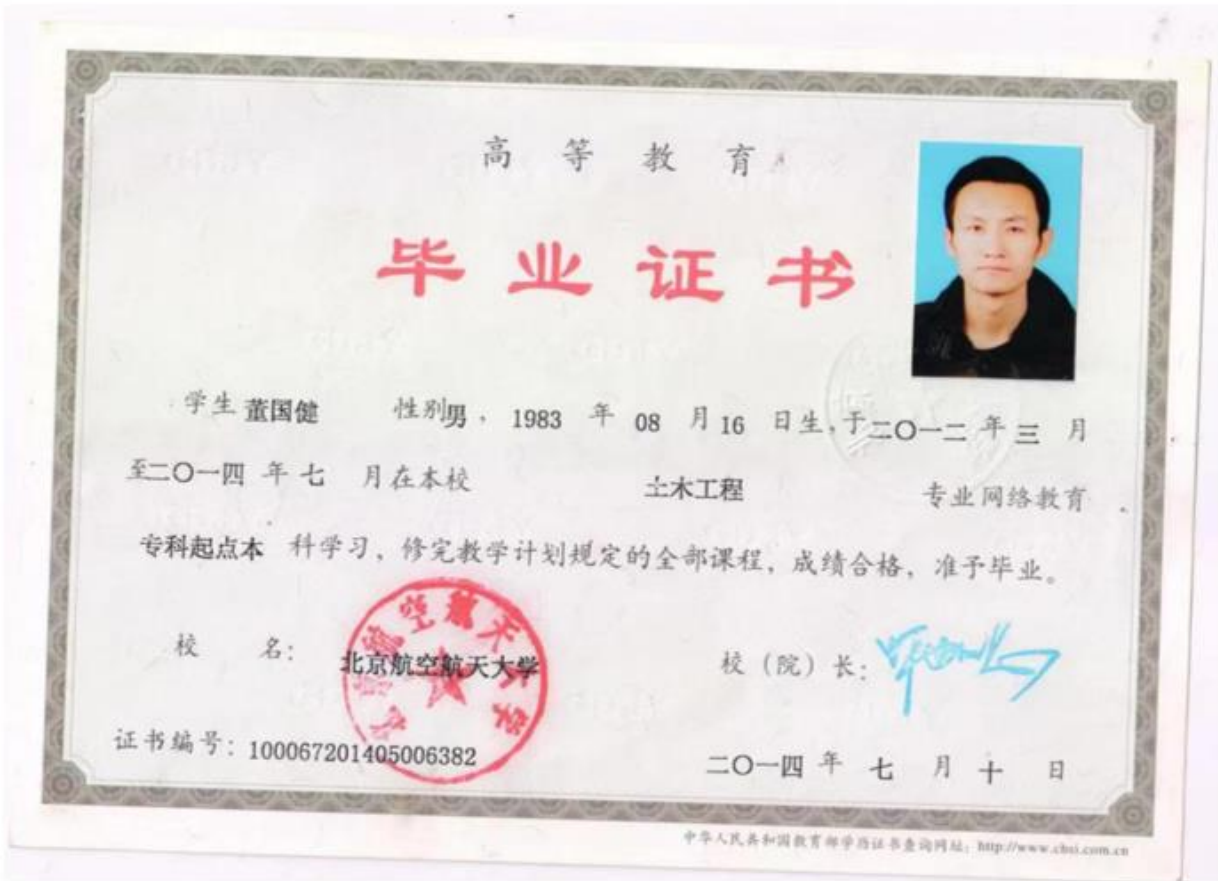 高等教育
毕业证书
学生 董国健 性别男，1983 年 08 月 16 日生，于二〇一二 年 三 月
至二〇一四 年 七 月在本校 土木工程 专业网络教育
专科起点本 科学习，修完教学计划规定的全部课程，成绩合格，准予毕业。
校 名： 北京航空航天大学 校（院）长：
证书编号：100067201405006382 二〇一四 年 七 月 十 日
中华人民共和国教育部学历证书查询网址：http://www.chsi.com.cn